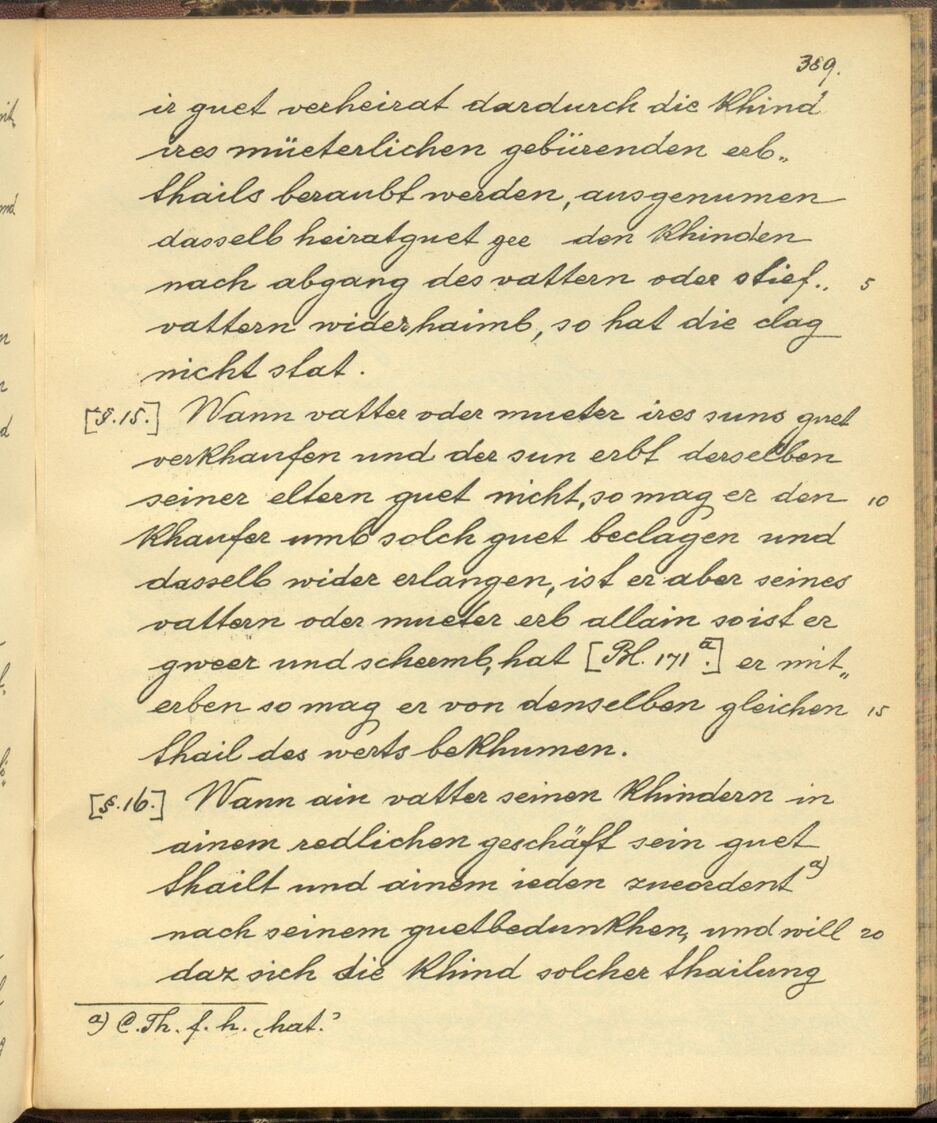 389.
ir guet verheirat dardurch die Khind
ires müeterlichen gebürenden erb„
thails beraubt werden, ausgenumen
dasselb heiratguet gee den Khinden
nach abgang des vattern oder stief„ 5
vattern widerhaimb, so hat die clag
nicht stat.
[§.15.] Wann vatter oder mueter ires suns guet
verkhaufen und der sun erbt derselben
seiner eltern guet nicht, so mag er den 10
Khaufer umb solch guet beclagen und
dasselb wider erlangen, ist er aber seines
vattern oder mueter erb allain so ist er
gweer und scheemb, hat [Bl. 171 a.] er mit„
erben so mag er von denselben gleichen 15
thail des werts bekhumen.
[§.16.] Wann ain vatter seinen Khindern in
ainem redlichen geschäft sein guet
thailt und ainem ieden zueordent a)
nach seinem guetbedunkhen, und will 20
daz sich die Khind solcher thailung
a) C. Th. f. h. „hat.“